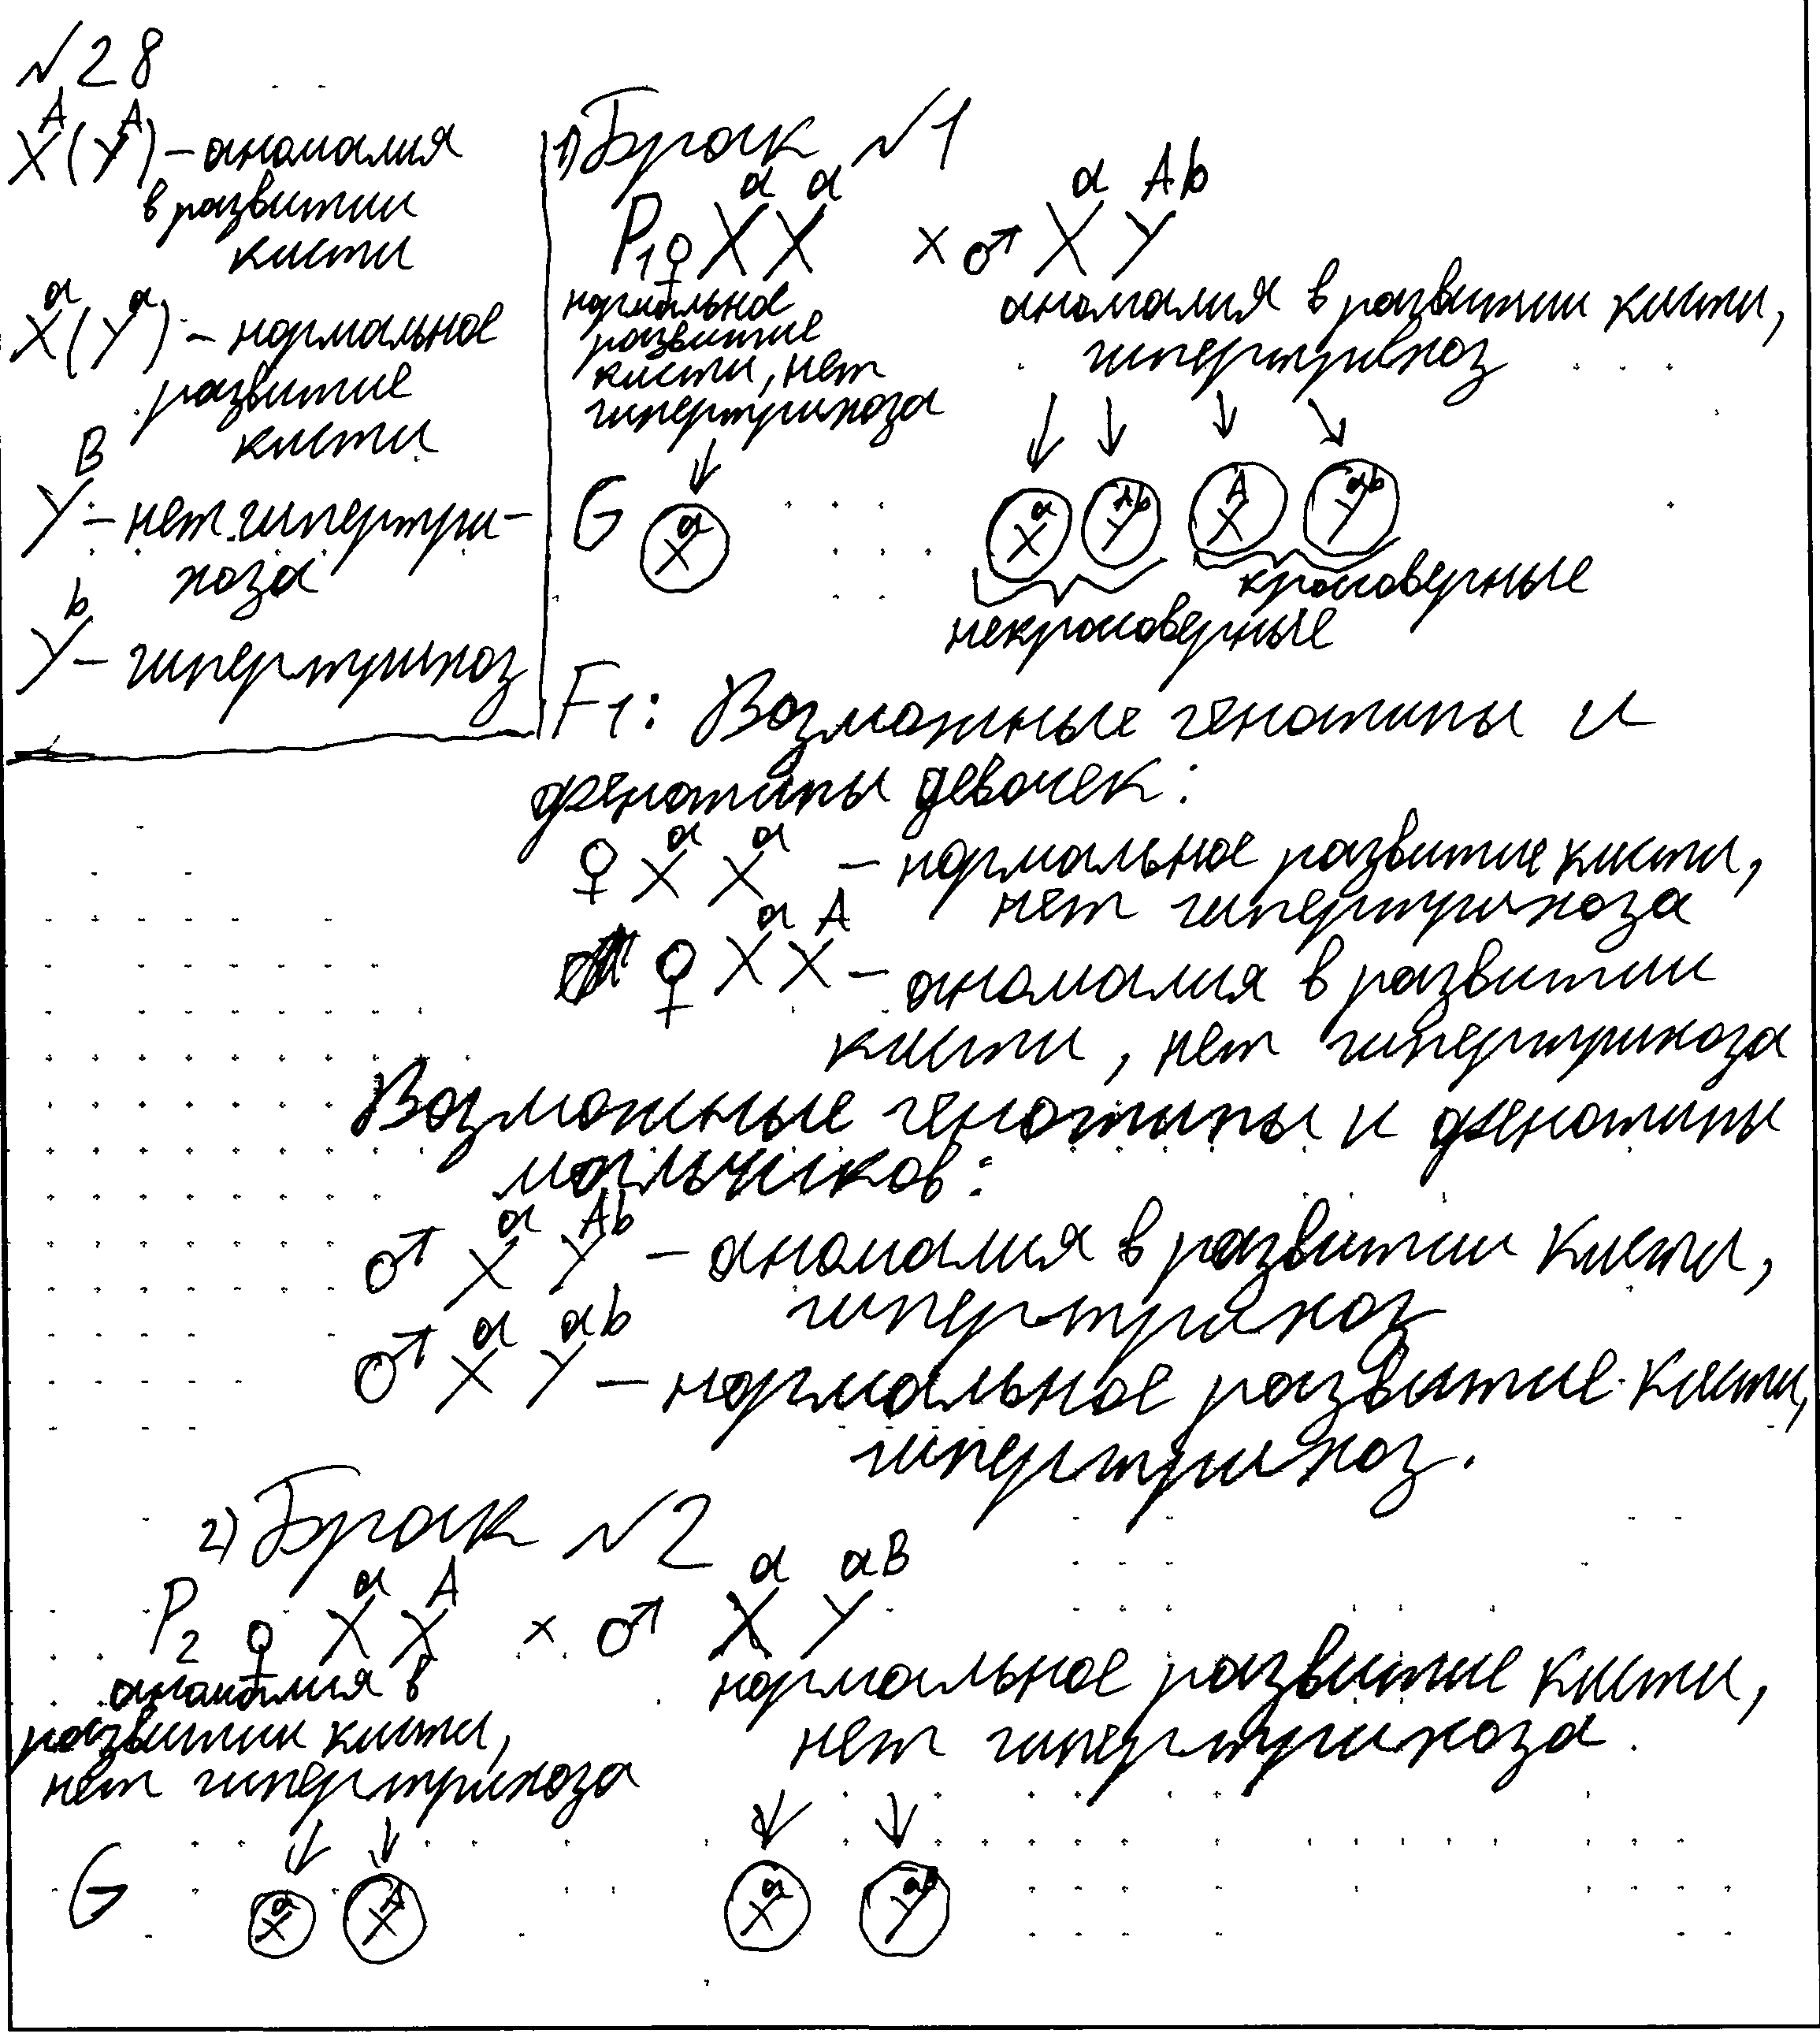 №28
X^A (Y^A) – аномалия
в развитии
кисти
X^a (Y^a) – нормальное
развитие
кисти
Y^B – нет гипертри-
хоза
Y^b – гипертрихоз
1) Брак №1
P1 ♀ X^a X^a × ♂ X^a Y^Ab
нормальное
развитие
кисти, нет
гипертрихоза
аномалия в развитии кисти,
гипертрихоз
G X^a X^a Y^Ab X^A Y^ab
кроссоверные
некроссоверные
F1: Возможные генотипы и
фенотипы девочек:
♀ X^a X^a – нормальное развитие кисти,
нет гипертрихоза
♀ X^a X^A – аномалия в развитии
кисти, нет гипертрихоза
Возможные генотипы и фенотипы
мальчиков:
♂ X^a Y^Ab – аномалия в развитии кисти,
гипертрихоз
♂ X^a Y^ab – нормальное развитие кисти,
гипертрихоз.
2) Брак №2
P2 ♀ X^a X^A × ♂ X^a Y^aB
аномалия в
развитии кисти,
нет гипертрихоза
нормальное развитие кисти,
нет гипертрихоза.
G X^a X^A X^a Y^aB